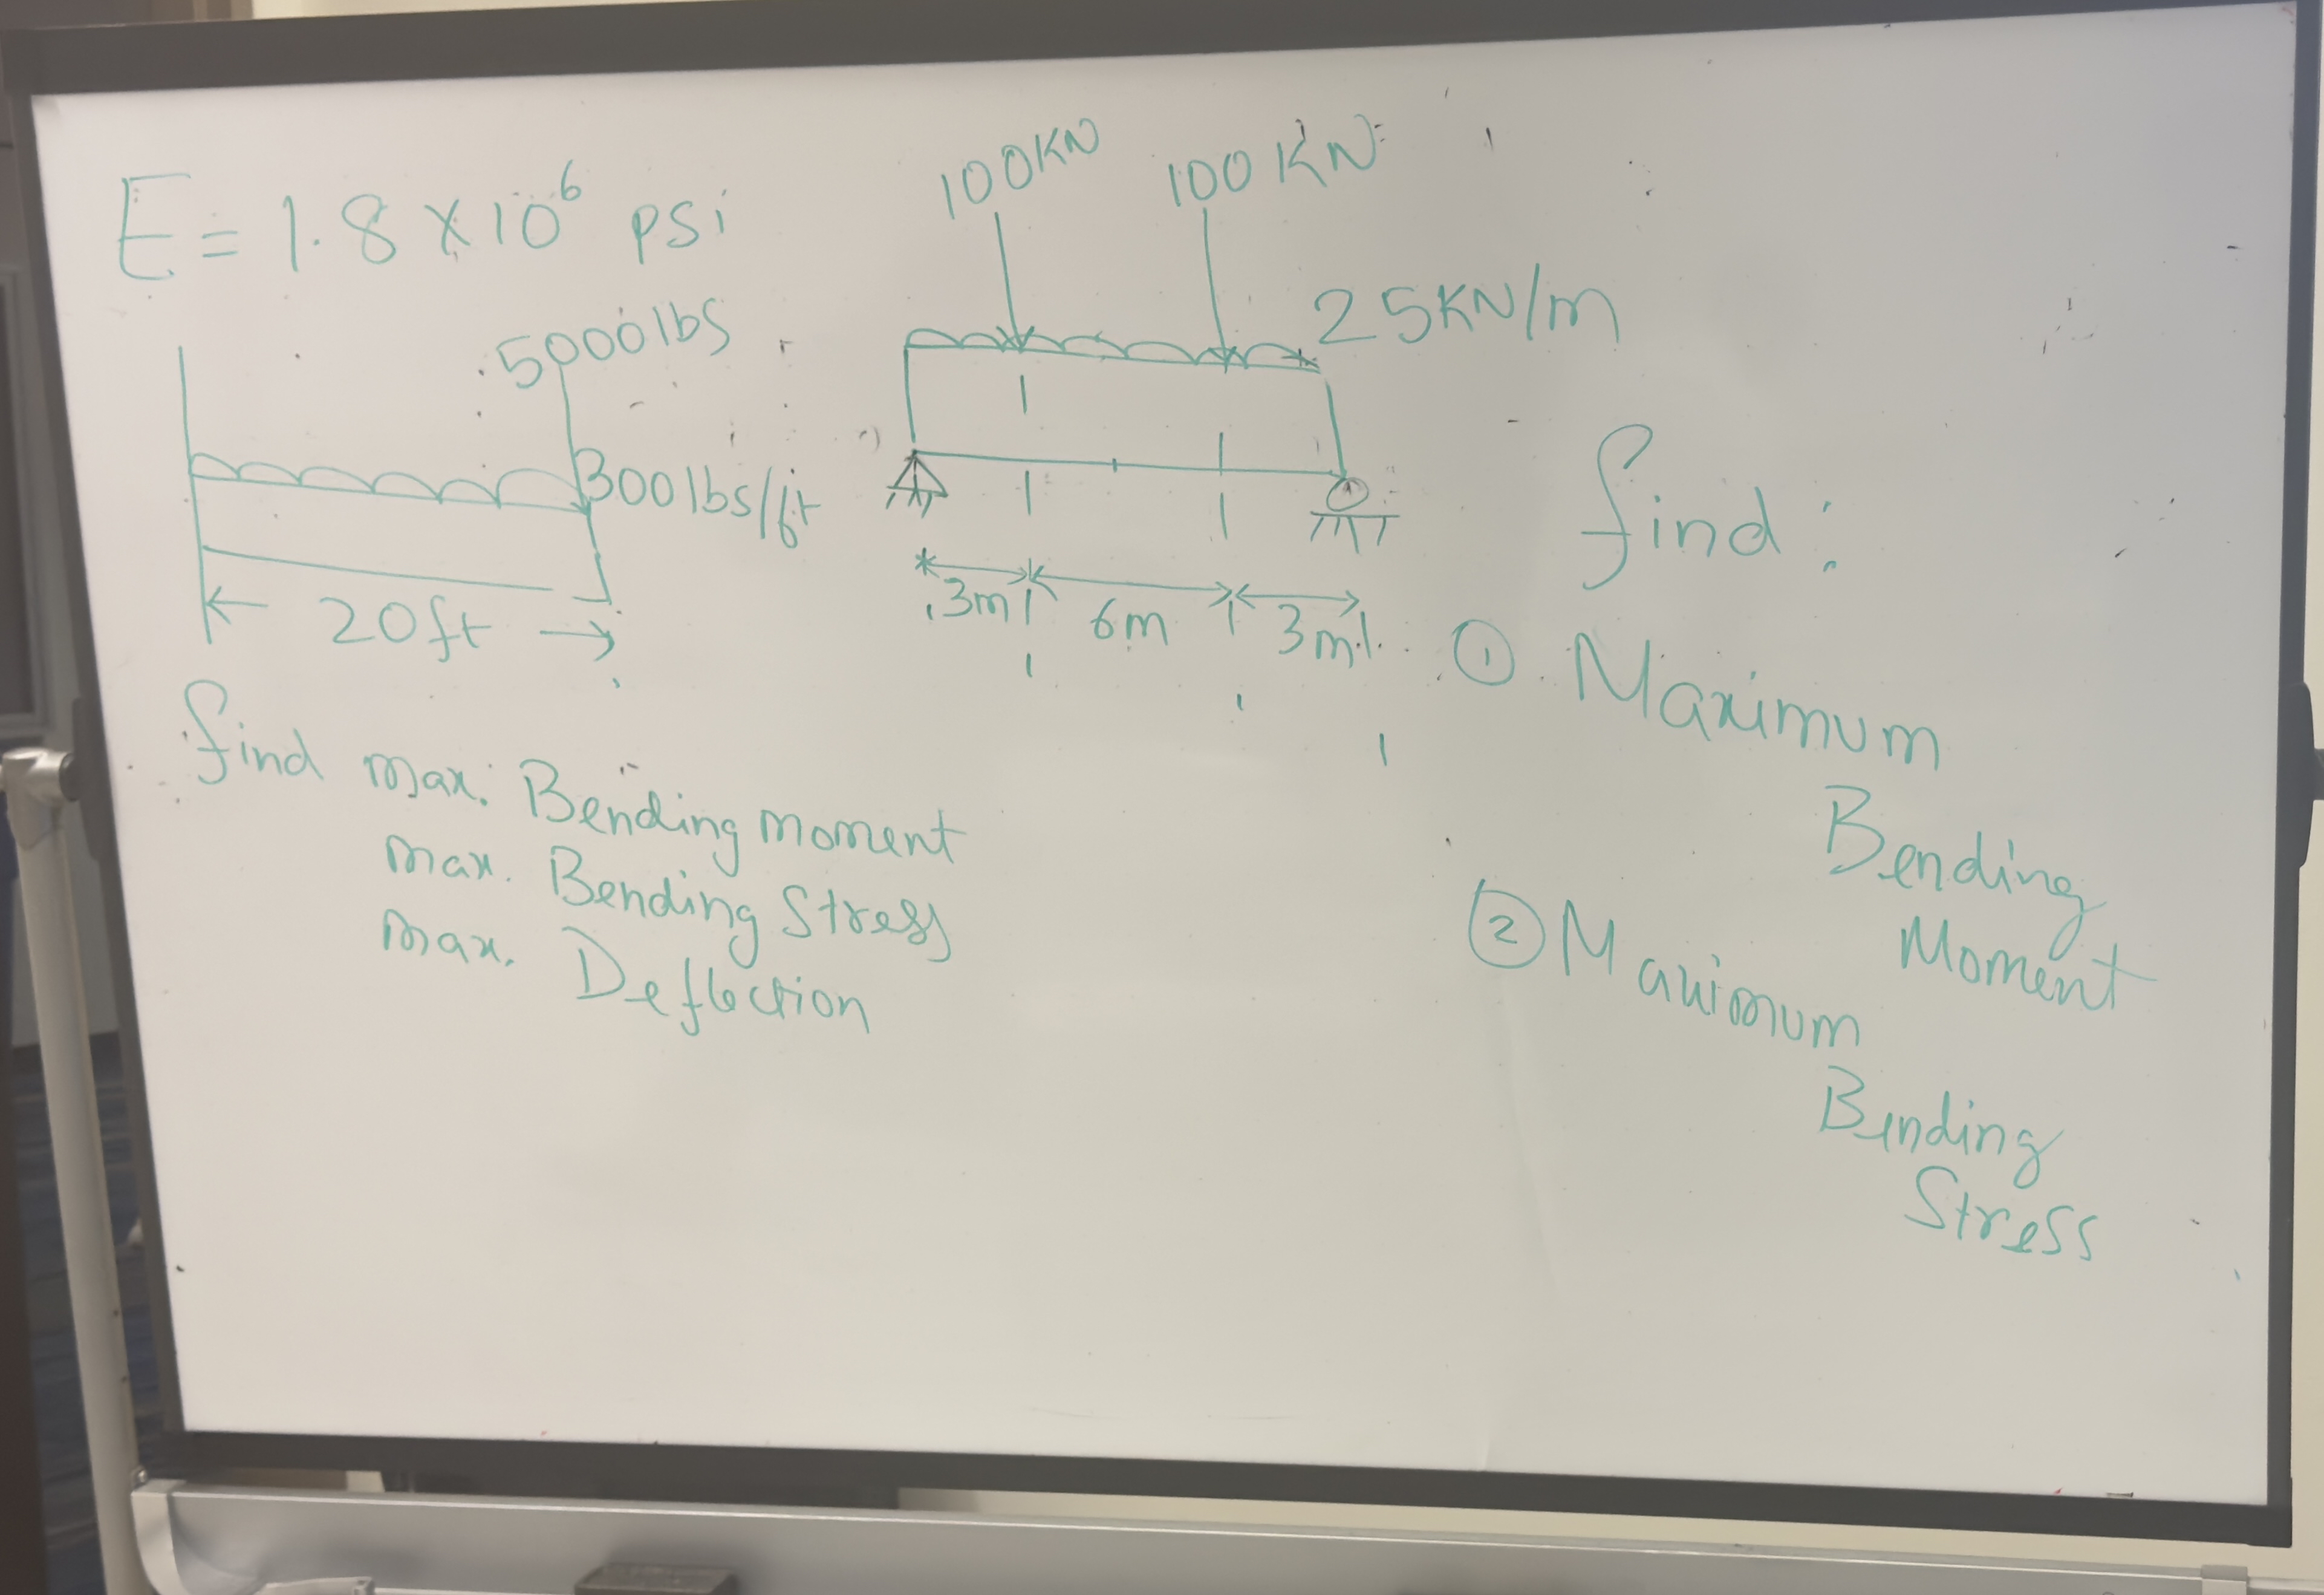 E = 1.8 × 10⁶ psi
5000 lbs
300 lbs/ft
20ft
find max. Bending moment
max. Bending Stress
max. Deflection
100KN
100 KN
25KN/m
3m
6m
3m
find:
① Maximum
Bending
Moment
② Maximum
Bending
Stress